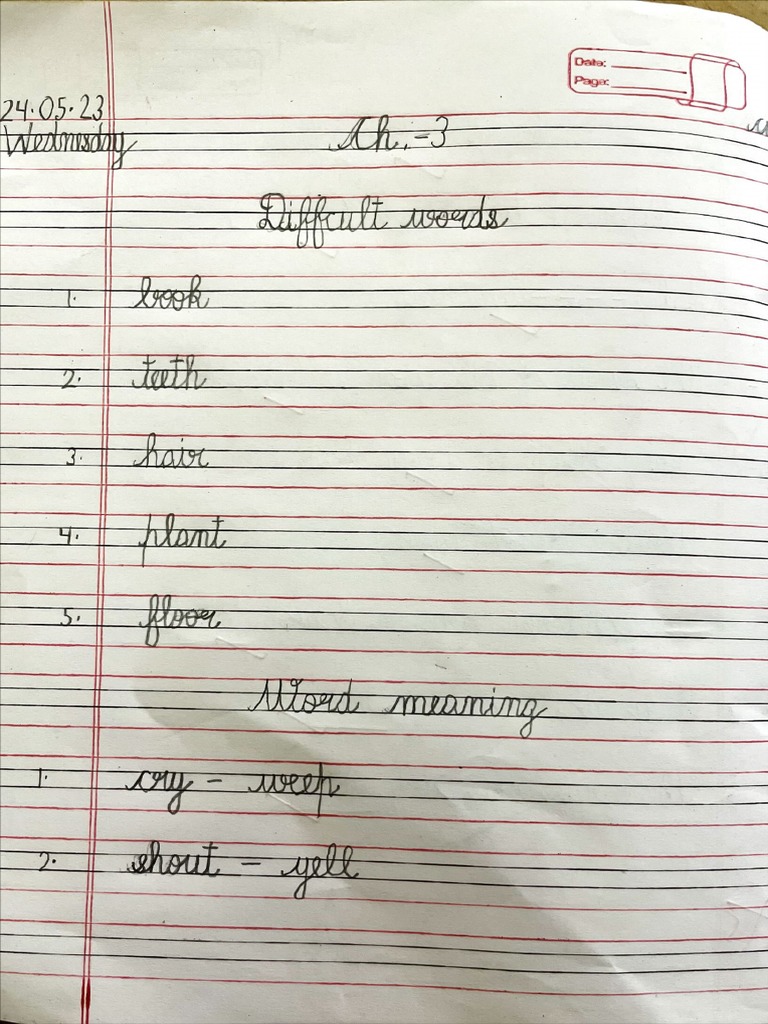 Date:
Page:
24.05.23
Wednesday
Ch.-3
Diffcult words
1. book
2. teeth
3. hair
4. plant
5. floor
Word meaning
1. cry - weep
2. shout - yell